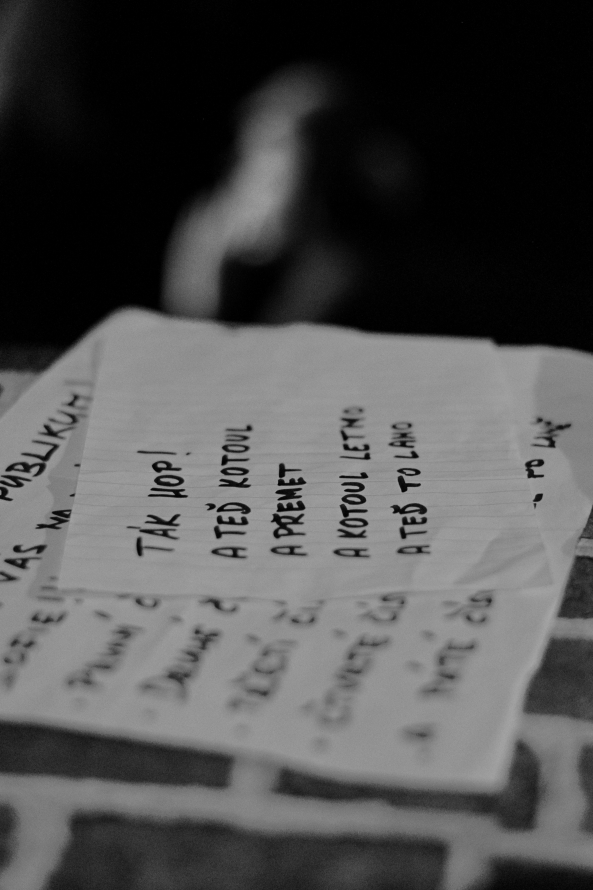 TÁK HOP!
A TEĎ KOTOUL
A PŘEMET
A KOTOUL LETMO
A TEĎ TO LANO
PUBLIKUM!
VÁS NA
PRVNÍ Č
DRUHÉ Č
TŘETÍ ČÍ
ČTVRTÉ ČÍS
A PÁTÉ ČÍS